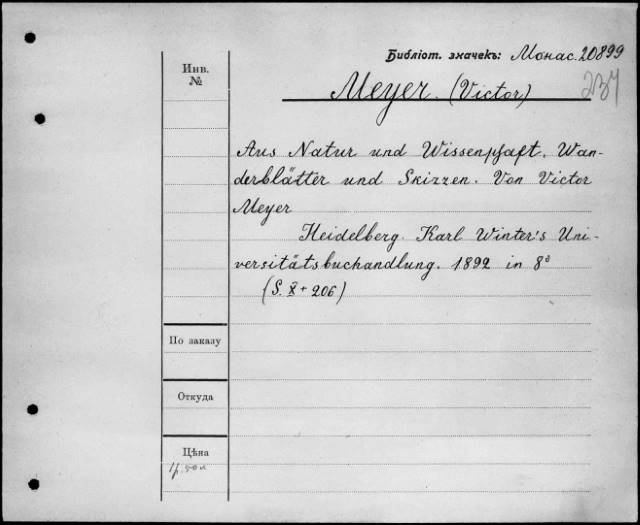 Библіот. значекъ: Монас. 20899
Инв. №
Meyer. (Victor)
237
Aus Natur und Wissenschaft. Wan-
derblätter und Skizzen. Von Victor
Meyer
Heidelberg. Karl Winter's Uni-
versitätsbuchhandlung. 1892 in 8°
(S. X + 206)
По заказу
Откуда
Цѣна